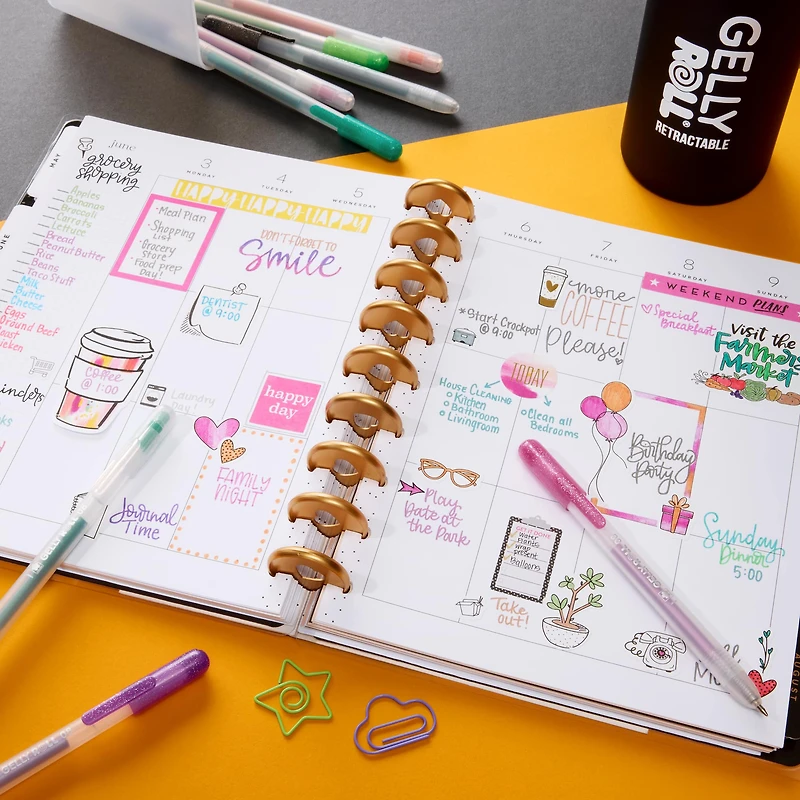 GELLY
ROLL®
RETRACTABLE
MAY
JUNE
june
grocery
shopping
Apples
Bananas
Broccoli
Carrots
Lettuce
Bread
Peanut Butter
Rice
Beans
Taco Stuff
Milk
Butter
Cheese
Eggs
Ground Beef
3
MONDAY
4
TUESDAY
5
WEDNESDAY
HAPPY HAPPY HAPPY
•Meal Plan
•Shopping
List
•Grocery
Store
•Food prep
Day!
DON'T FORGET TO
Smile
DENTIST
@ 9:00
Coffee
@ 1:00
Laundry
Day!
happy
day
FAMILY
NIGHT
Journal
Time
6
THURSDAY
7
FRIDAY
8
SATURDAY
9
SUNDAY
*Start Crockpot
@ 9:00
more
COFFEE
Please!
WEEKEND PLANS
Special
Breakfast
Visit the
Farmers
Market
TODAY
HOUSE CLEANING
•Kitchen
•Bathroom
•Livingroom
•Clean all
Bedrooms
Birthday
Party
Play
Date at
the Park
GET IT DONE
Water
Plants
wrap
present
Balloons
Take
out!
Sunday
Dinner
5:00
AUGUST